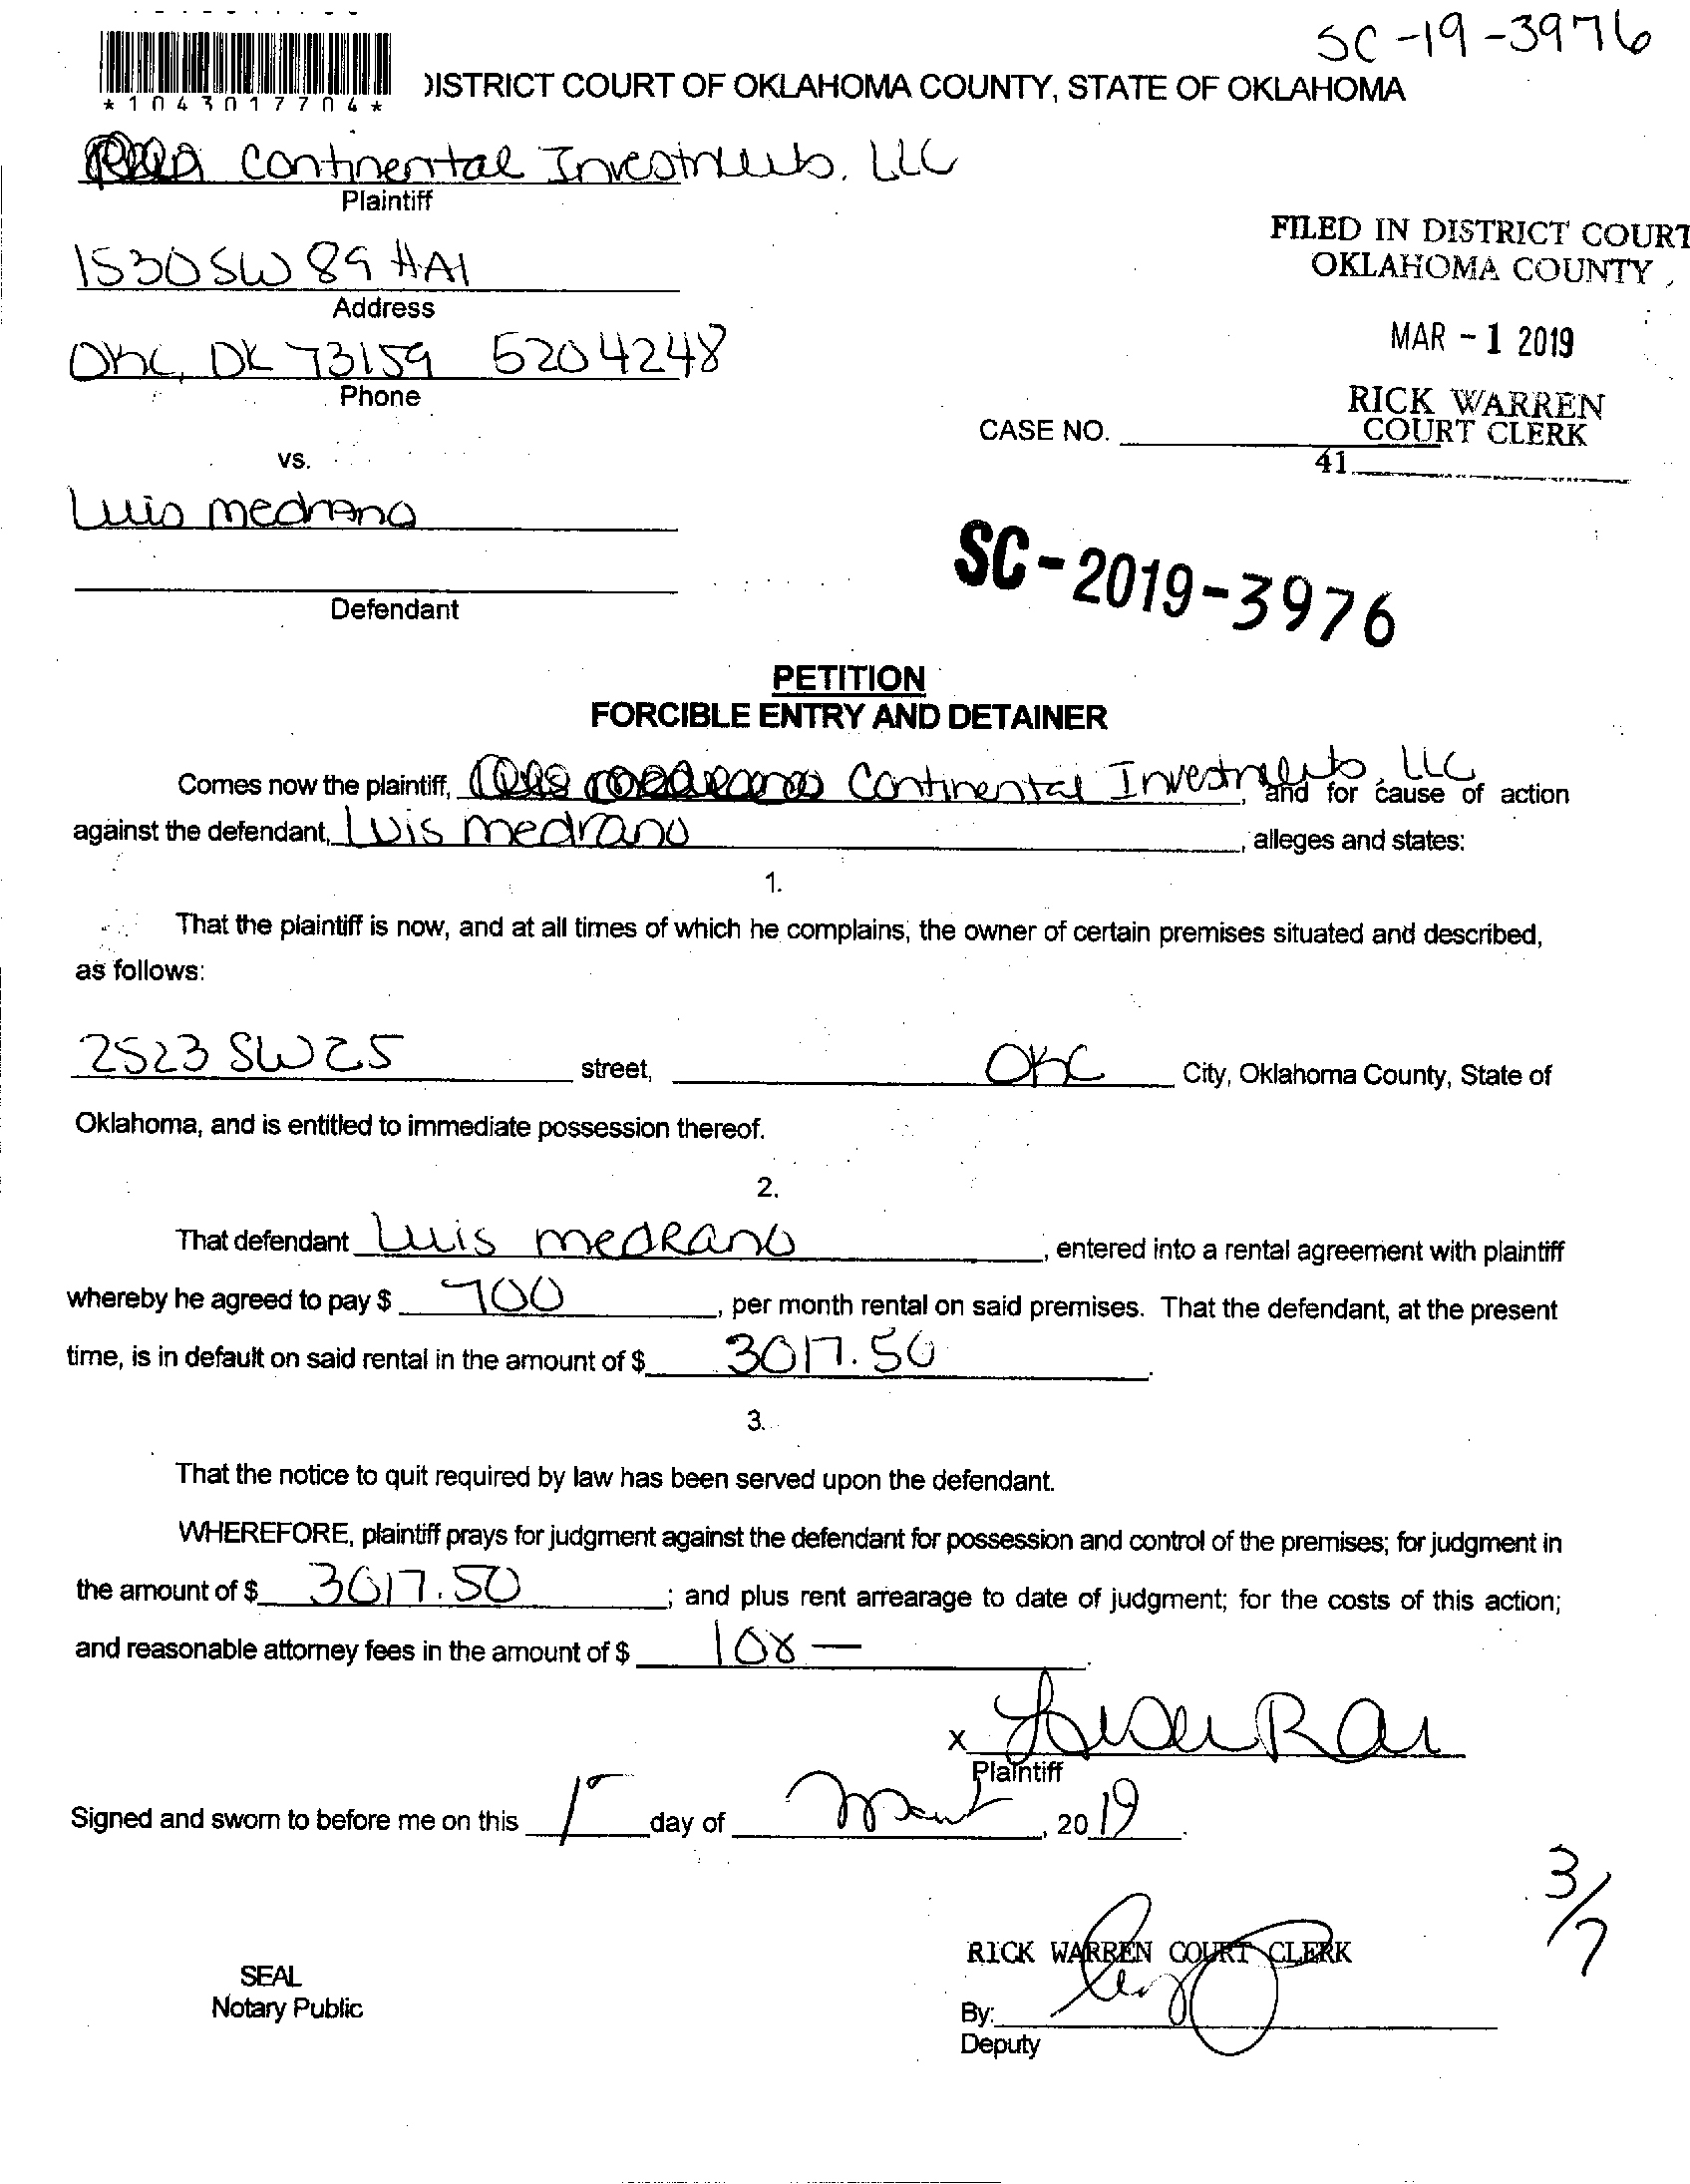 SC-19-3976
*1043017704*
DISTRICT COURT OF OKLAHOMA COUNTY, STATE OF OKLAHOMA
Continental Investments, LLC
Plaintiff
1530 SW 89 #A1
Address
FILED IN DISTRICT COURT
OKLAHOMA COUNTY
OKC, OK 73159 5204248
Phone
MAR - 1 2019
RICK WARREN
COURT CLERK
CASE NO.
41
vs.
Luis medrano
Defendant
SC-2019-3976
PETITION
FORCIBLE ENTRY AND DETAINER
Comes now the plaintiff, Continental Investments, LLC, and for cause of action
against the defendant, Luis medrano, alleges and states:
1.
That the plaintiff is now, and at all times of which he complains, the owner of certain premises situated and described,
as follows:
2523 SW 25 street, OKC City, Oklahoma County, State of
Oklahoma, and is entitled to immediate possession thereof.
2.
That defendant Luis medRano, entered into a rental agreement with plaintiff
whereby he agreed to pay $ 700, per month rental on said premises. That the defendant, at the present
time, is in default on said rental in the amount of $ 3017.50.
3.
That the notice to quit required by law has been served upon the defendant.
WHEREFORE, plaintiff prays for judgment against the defendant for possession and control of the premises; for judgment in
the amount of $ 3017.50; and plus rent arrearage to date of judgment; for the costs of this action;
and reasonable attorney fees in the amount of $ 108—.
X
Plaintiff
Signed and sworn to before me on this 1 day of March, 2019.
3/7
RICK WARREN COURT CLERK
SEAL
Notary Public
By:
Deputy